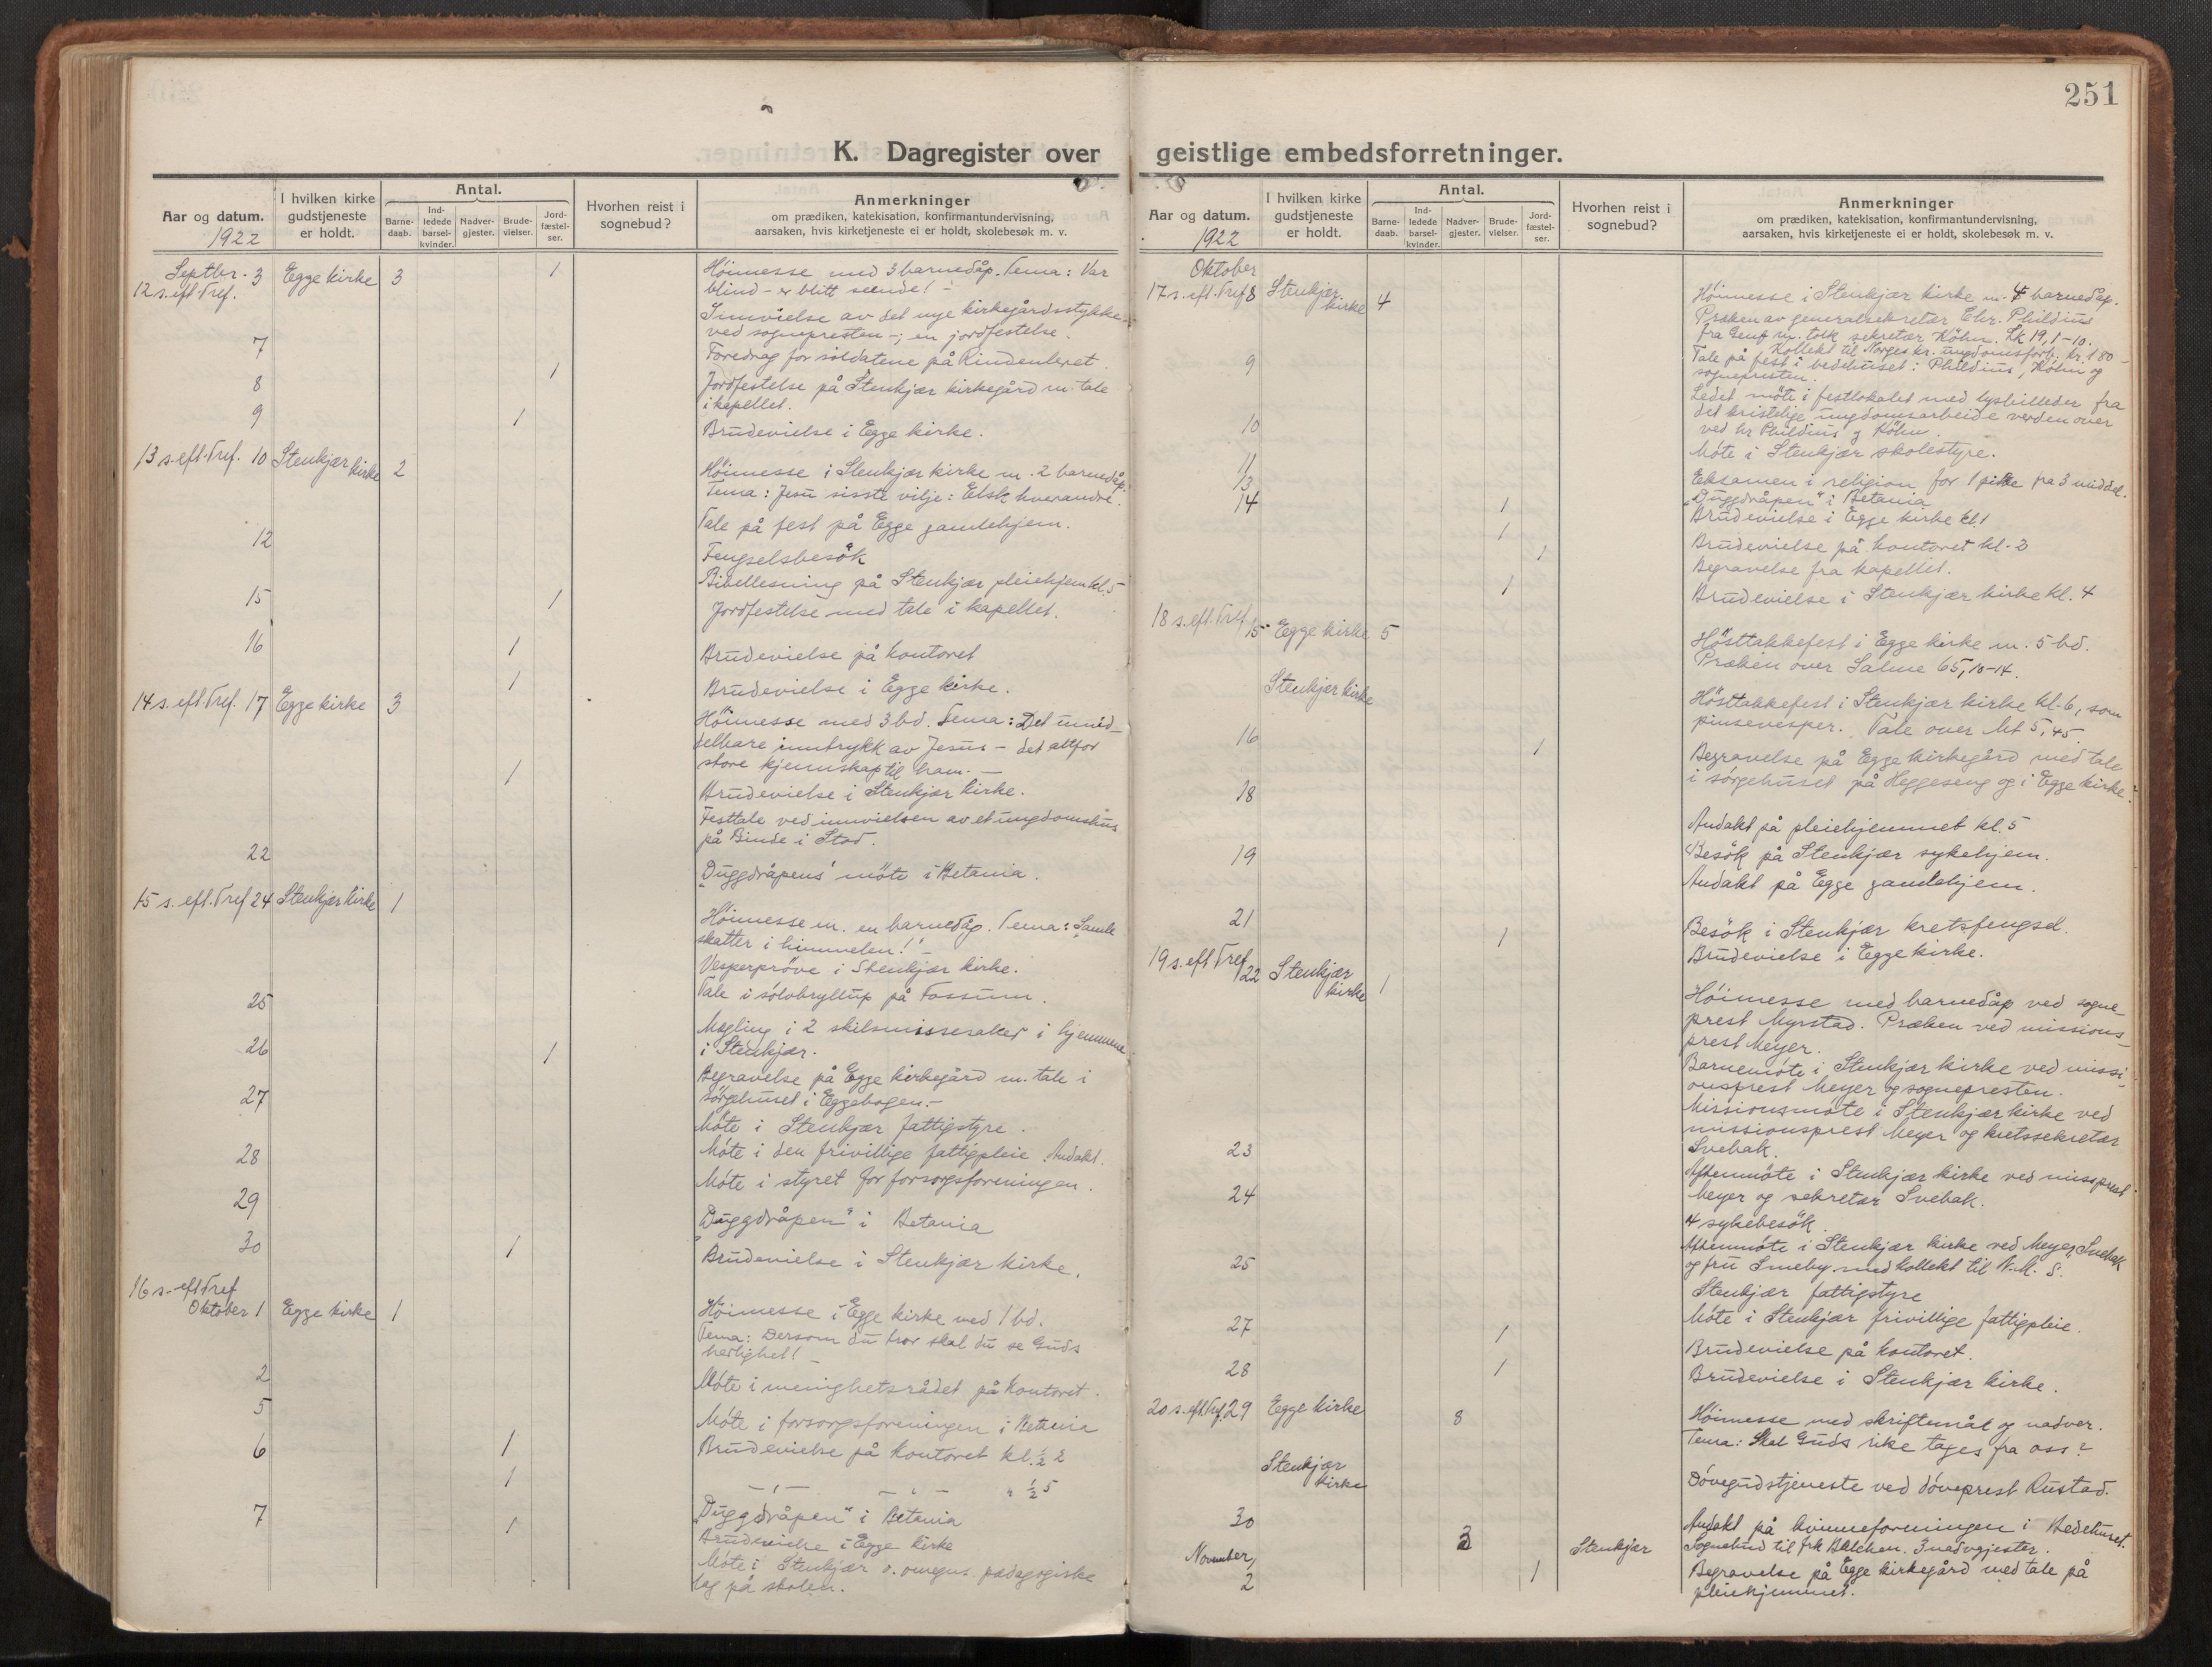 251
K. Dagregister over geistlige embedsforretninger.
Aar og datum.
1922
I hvilken kirke gudstjeneste er holdt.
Antal.
Barne-daab.
Ind-ledede barsel-kvinder.
Nadver-gjester.
Brude-vielser.
Jord-fæstel-ser.
Hvorhen reist i sognebud?
Anmerkninger
om prædiken, katekisation, konfirmantundervisning,
aarsaken, hvis kirketjeneste ei er holdt, skolebesøk m. v.
Septbr. 3 Egge kirke 3 1 Höimesse med 3 barnedåp. Tema: Var
12 s. eft. Tref. blind - er blitt seende! -
Innvielse av det nye kirkegårdsstykke
ved sognepresten -; en jordfestelse.
7 Foredrag for soldatene på Rindenleret.
8 1 Jordfestelse på Stenkjær kirkegård m. tale
i kapellet.
9 1 Brudevielse i Egge kirke.
13 s. eft. Tref. 10 Stenkjær kirke 2 Höimesse i Stenkjær kirke m. 2 barnedåp.
Tema: Jesu sisste vilje: Elsk hverandre.
Tale på fest på Egge gamlehjem.
12 Fengselsbesök
Bibellesning på Stenkjær pleiehjem kl. 5
15 1 Jordfestelse med tale i kapellet.
16 1 Brudevielse på kontoret
1 Brudevielse i Egge kirke.
14 s. eft. Tref. 17 Egge kirke 3 Höimesse med 3 bd. Tema: Det umid-
delbare inntrykk av Jesus - det altfor
store kjennskap til ham. -
1 Brudevielse i Stenkjær kirke.
Festtale ved innvielsen av et ungdomshus
på Binde i Stod.
22 "Duggdråpens" möte i Betania.
15 s. eft. Tref 24 Stenkjær kirke 1 Höimesse m. en barnedåp. Tema: "Samle
skatter i himmelen!" -
Vesperpröve i Stenkjær kirke.
Tale i sölvbryllup på Fossum.
25 Megling i 2 skilsmissesaker i hjemmene
i Stenkjær.
26 1 Begravelse på Egge kirkegård m. tale i
sörgehuset i Eggebogen. -
27 Möte i Stenkjær fattigstyre.
28 Möte i den frivillige fattigpleie. Andakt.
Möte i styret for forsorgsforeningen.
29 "Duggdråpen" i Betania
30 1 Brudevielse i Stenkjær kirke.
16 s. eft Tref
Oktober 1 Egge kirke 1 Höimesse i Egge kirke med 1 bd.
Tema: Dersom du tror skal du se Guds
herlighet! -
2 Möte i menighetsrådet på kontoret.
5 Möte i forsorgsforeningen i Betania
6 1 Brudevielse på kontoret kl. ½ 2
1 -"- -"- " ½ 5
7 "Duggdråpen" i Betania
1 Brudevielse i Egge kirke
Möte i Stenkjær o. omegns pædagogiske
lag på skolen.
Aar og datum.
1922
I hvilken kirke gudstjeneste er holdt.
Antal.
Barne-daab.
Ind-ledede barsel-kvinder.
Nadver-gjester.
Brude-vielser.
Jord-fæstel-ser.
Hvorhen reist i sognebud?
Anmerkninger
om prædiken, katekisation, konfirmantundervisning,
aarsaken, hvis kirketjeneste ei er holdt, skolebesøk m. v.
Oktober
17 s. eft. Tref 8 Stenkjær kirke 4 Höimesse i Stenkjær kirke m. 4 barnedåp.
Præken av generalsekretær Chr. Phildius
fra Genf m. tolk sekretær Köhn. Lk 19, 1-10.
Kollekt til Norges kr. ungdomsforb. kr. 180 -
Tale på fest i bedehuset: Phildius, Köhn og
sognepresten.
9 Ledet möte i festlokalet med lysbilleder fra
det kristelige ungdomsarbeide verden over
ved hr Phildius og Köhn.
10 Möte i Stenkjær skolestyre.
11 Eksamen i religion for 1 pike fra 3 middel.
13 "Duggdråpen" i Betania
14 1 Brudevielse i Egge kirke kl. 1
1 Brudevielse på kontoret kl. 2
1 Begravelse fra kapellet.
1 Brudevielse i Stenkjær kirke kl. 4
18 s. eft. Tref. 15 Egge kirke 5 Hösttakkefest i Egge kirke m. 5 bd.
Præken over Salme 65, 10-14.
Stenkjær kirke Hösttakkefest i Stenkjær kirke kl. 6, som
pinsevesper. Tale over Mt 5, 45.
16 1 Begravelse på Egge kirkegård med tale
i sörgehuset på Heggeseng og i Egge kirke.
18 Andakt på pleiehjemmet kl. 5
Besök på Stenkjær sykehjem.
19 Andakt på Egge gamlehjem.
21 Besök i Stenkjær kretsfengsel.
1 Brudevielse i Egge kirke.
19 s. eft Tref 22 Stenkjær kirke 1 Höimesse med barnedåp ved sogne-
prest Myrstad. Præken ved missions-
prest Meyer.
Barnemöte i Stenkjær kirke ved missi-
onsprest Meyer og sognepresten.
Missionsmöte i Stenkjær kirke ved
missionsprest Meyer og kretssekretær
Svebak.
23 Aftenmöte i Stenkjær kirke ved miss.prest
Meyer og sekretær Svebak.
24 4 sykebesök.
Aftenmöte i Stenkjær kirke ved Meyer, Svebak
og fru Smeby med kollekt til N.M.S.
25 Stenkjær fattigstyre
Möte i Stenkjær frivillige fattigpleie.
27 1 Brudevielse på kontoret.
28 1 Brudevielse i Stenkjær kirke.
20 s. eft. Tref. 29 Egge kirke 8 Höimesse med skriftemål og nadver.
Tema: Skal Guds rike tages fra oss?
Stenkjær kirke Dövegudstjeneste ved döveprest Rustad.
30 Andakt på kvinneforeningen i Bedehuset.
3 Stenkjær Sognebud til frk Balchen. 3 nadvgjester.
November 2 1 Begravelse på Egge kirkegård med tale på
pleiehjemmet.